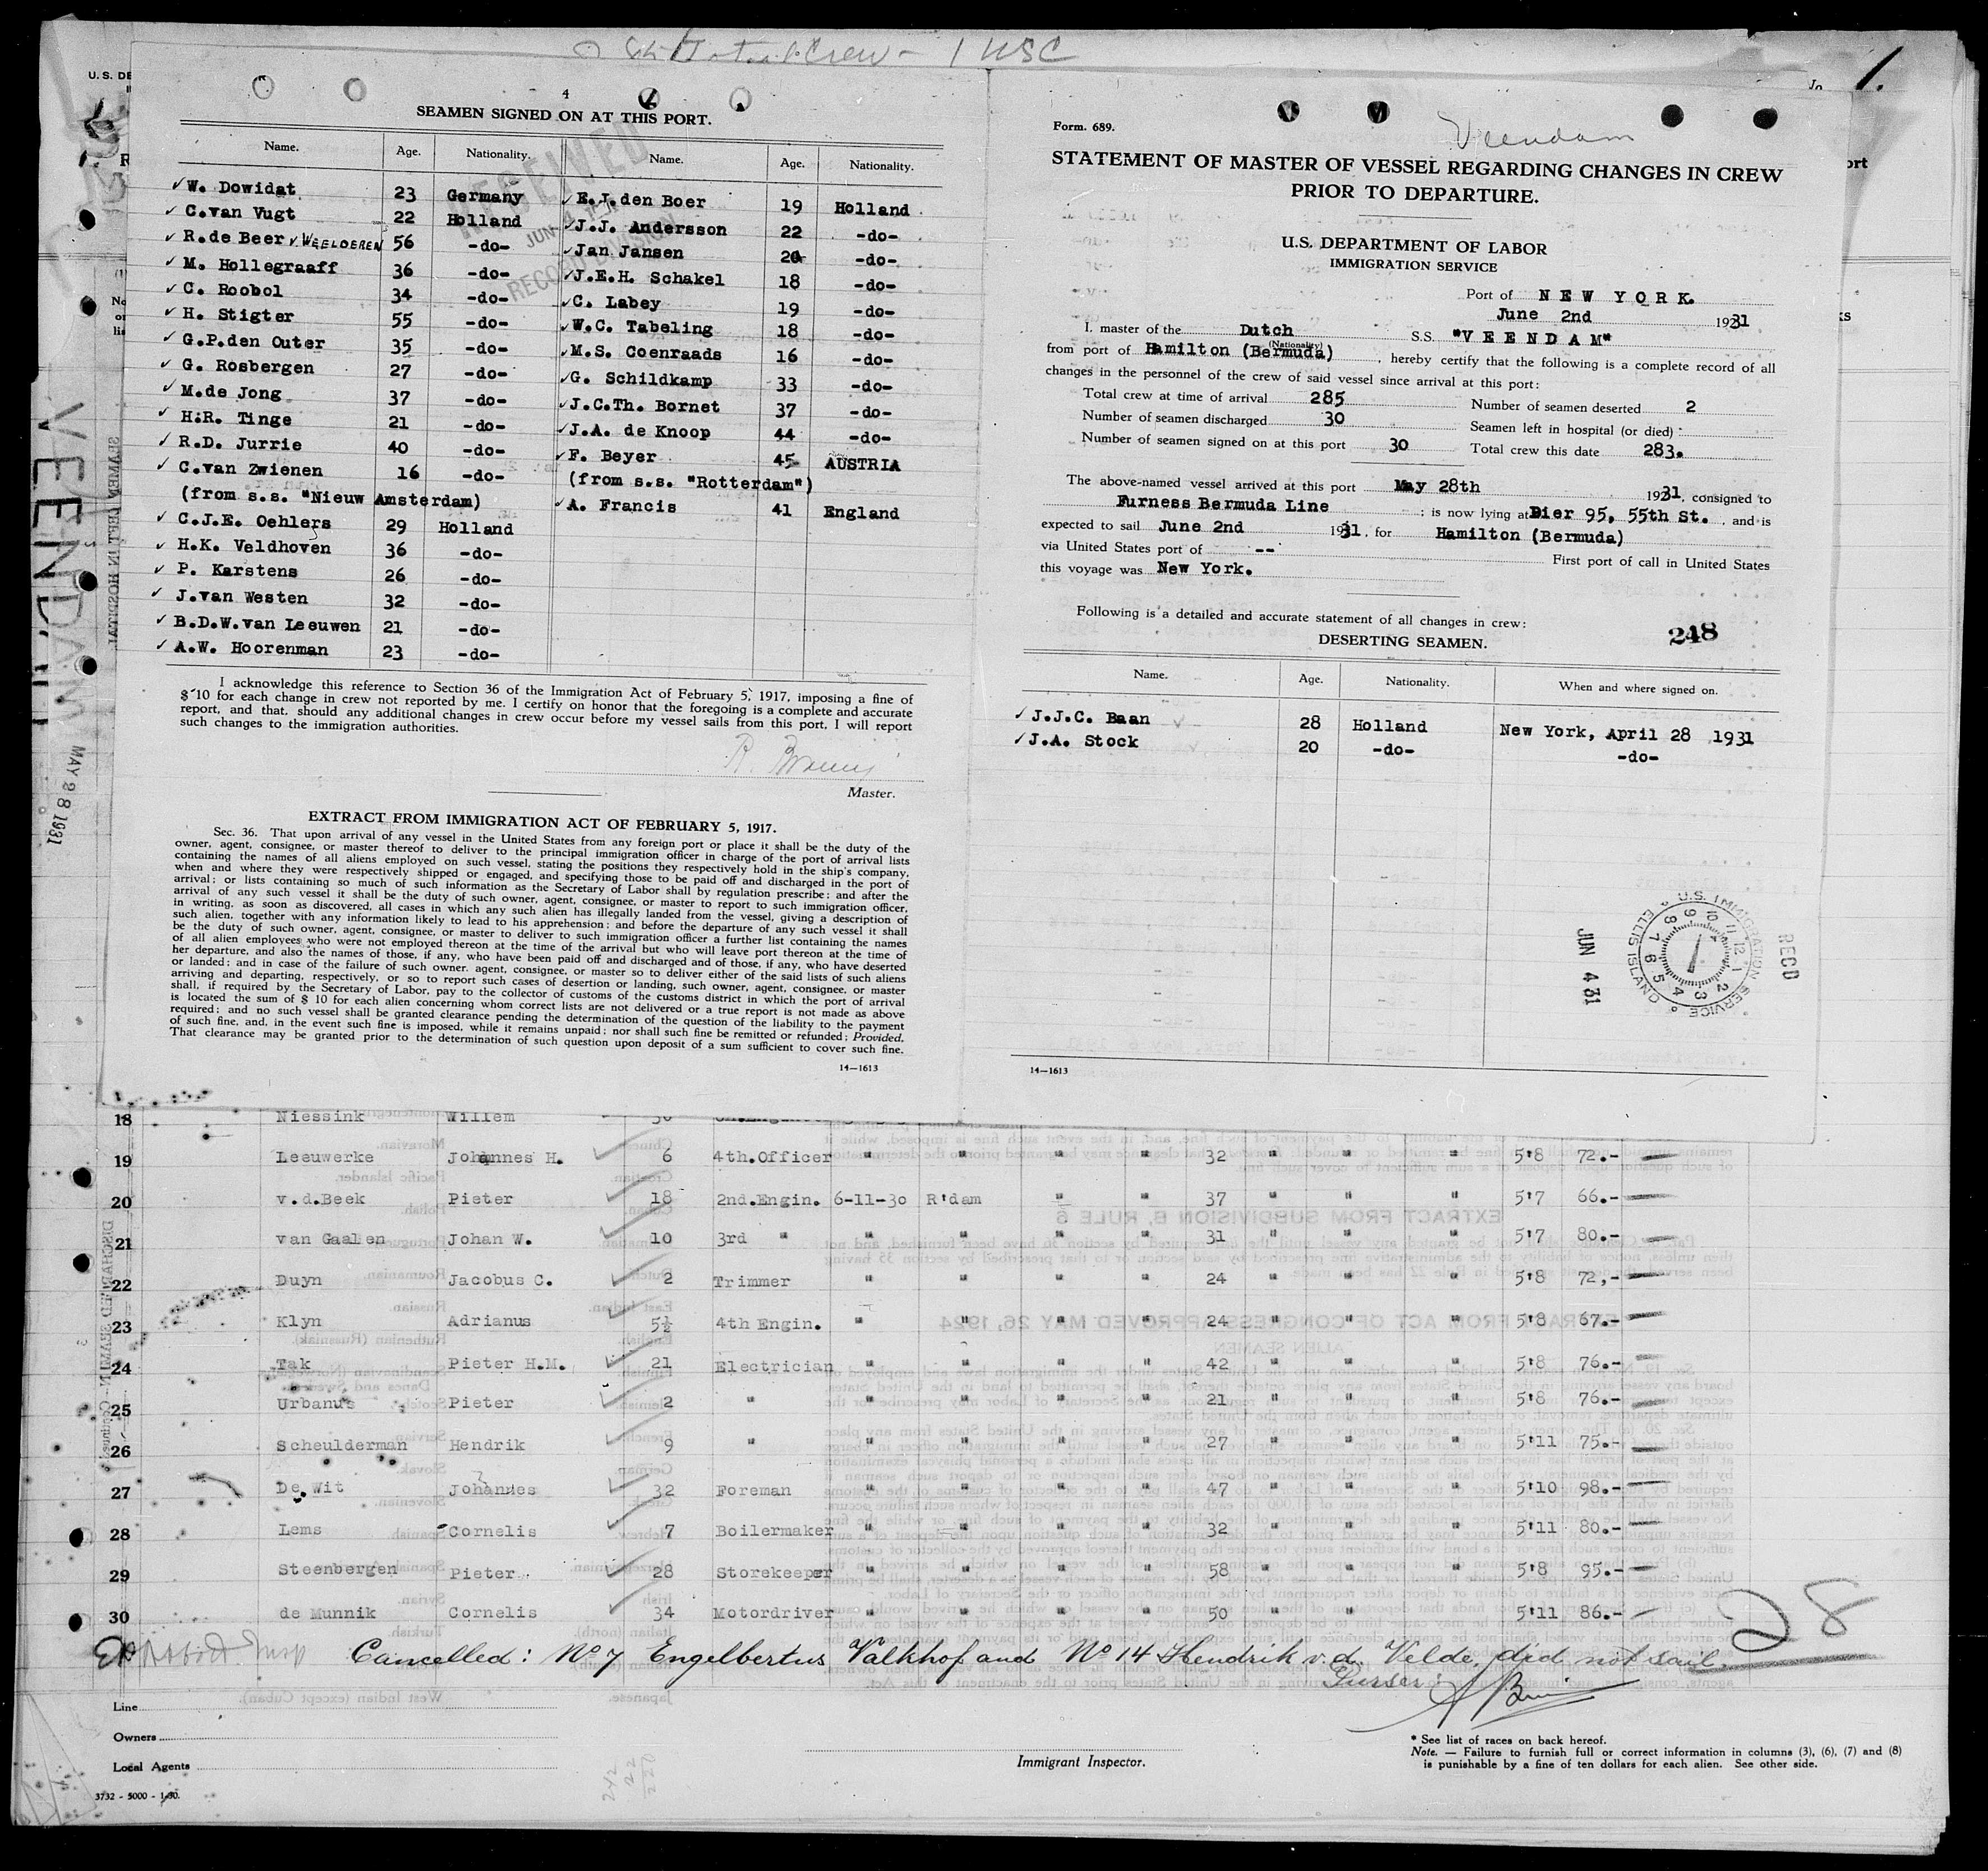 Total Crew - 1 USC
1.
U. S. DE
4
SEAMEN SIGNED ON AT THIS PORT.
Name. Age. Nationality. Name. Age. Nationality.
RECEIVED
RECORD DIVISION
✓ W. Dowidat 23 Germany ✓ E.J.den Boer 19 Holland
✓ C.van Vugt 22 Holland ✓ J.J. Andersson 22 -do-
✓ R.de Beer v. WEELDEREN 56 -do- ✓ Jan Jansen 20 -do-
✓ M. Hollegraaff 36 -do- ✓ J.E.H. Schakel 18 -do-
✓ C. Roobol 34 -do- ✓ C. Labey 19 -do-
✓ H. Stigter 55 -do- ✓ W.C. Tabeling 18 -do-
✓ G.P.den Outer 35 -do- ✓ M.S. Coenraads 16 -do-
✓ G. Rosbergen 27 -do- ✓ G. Schildkamp 33 -do-
✓ M.de Jong 37 -do- ✓ J.C.Th. Bornet 37 -do-
✓ H.R. Tinge 21 -do- ✓ J.A. de Knoop 44 -do-
✓ R.D. Jurrie 40 -do- ✓ F. Beyer 45 AUSTRIA
✓ C.van Zwienen 16 -do- (from s.s. "Rotterdam")
(from s.s. "Nieuw Amsterdam) ✓ A. Francis 41 England
✓ C.J.E. Oehlers 29 Holland
✓ H.K. Veldhoven 36 -do-
✓ P. Karstens 26 -do-
✓ J.van Westen 32 -do-
✓ B.D.W.van Leeuwen 21 -do-
✓ A.W. Hoorenman 23 -do-
I acknowledge this reference to Section 36 of the Immigration Act of February 5, 1917, imposing a fine of
$ 10 for each change in crew not reported by me. I certify on honor that the foregoing is a complete and accurate
report, and that, should any additional changes in crew occur before my vessel sails from this port, I will report
such changes to the immigration authorities.
Master.
EXTRACT FROM IMMIGRATION ACT OF FEBRUARY 5, 1917.
Sec. 36. That upon arrival of any vessel in the United States from any foreign port or place it shall be the duty of the
owner, agent, consignee, or master thereof to deliver to the principal immigration officer in charge of the port of arrival lists
containing the names of all aliens employed on such vessel, stating the positions they respectively hold in the ship's company,
when and where they were respectively shipped or engaged, and specifying those to be paid off and discharged in the port of
arrival; or lists containing so much of such information as the Secretary of Labor shall by regulation prescribe; and after the
arrival of any such vessel it shall be the duty of such owner, agent, consignee, or master to report to such immigration officer,
in writing, as soon as discovered, all cases in which any such alien has illegally landed from the vessel, giving a description of
such alien, together with any information likely to lead to his apprehension; and before the departure of any such vessel it shall
be the duty of such owner, agent, consignee, or master to deliver to such immigration officer a further list containing the names
of all alien employees who were not employed thereon at the time of the arrival but who will leave port thereon at the time of
her departure, and also the names of those, if any, who have been paid off and discharged and of those, if any, who have deserted
or landed; and in case of the failure of such owner. agent, consignee, or master so to deliver either of the said lists of such aliens
arriving and departing, respectively, or so to report such cases of desertion or landing, such owner, agent, consignee, or master
shall, if required by the Secretary of Labor, pay to the collector of customs of the customs district in which the port of arrival
is located the sum of $ 10 for each alien concerning whom correct lists are not delivered or a true report is not made as above
required; and no such vessel shall be granted clearance pending the determination of the question of the liability to the payment
of such fine, and, in the event such fine is imposed, while it remains unpaid; nor shall such fine be remitted or refunded; Provided,
That clearance may be granted prior to the determination of such question upon deposit of a sum sufficient to cover such fine.
14—1613
VEENDAM
MAY 28 1931
Form. 689.
Veendam
STATEMENT OF MASTER OF VESSEL REGARDING CHANGES IN CREW
PRIOR TO DEPARTURE.
U.S. DEPARTMENT OF LABOR
IMMIGRATION SERVICE
Port of NEW YORK.
June 2nd 1931
I. master of the Dutch S.S. "VEENDAM"
(Nationality)
from port of Hamilton (Bermuda), hereby certify that the following is a complete record of all
changes in the personnel of the crew of said vessel since arrival at this port:
Total crew at time of arrival 285 Number of seamen deserted 2
Number of seamen discharged 30 Seamen left in hospital (or died)
Number of seamen signed on at this port 30 Total crew this date 283.
The above-named vessel arrived at this port May 28th 1931, consigned to
Furness Bermuda Line; is now lying at Pier 95, 55th St., and is
expected to sail June 2nd 1931, for Hamilton (Bermuda)
via United States port of -- First port of call in United States
this voyage was New York.
Following is a detailed and accurate statement of all changes in crew:
248
DESERTING SEAMEN.
Name. Age. Nationality. When and where signed on.
✓ J.J.C. Baan 28 Holland New York, April 28 1931
✓ J.A. Stock 20 -do- -do-
RECD
U.S. IMMIGRATION SERVICE
ELLIS ISLAND
JUN 4 31
14—1613
18 Niessink Willem
19 Leeuwerke Johannes H. 6 4th.Officer " " " " 32 " " " 5'8 72.-
20 v.d.Beek Pieter 18 2nd.Engin. 6-11-30 R'dam " " 37 " " " 5'7 66.-
21 van Gaalen Johan W. 10 3rd " " " " " 31 " " " 5'7 80.-
22 Duyn Jacobus C. 2 Trimmer " " " " 24 " " " 5'8 72,-
23 Klyn Adrianus 5½ 4th Engin. " " " " 24 " " " 5'8 67.-
24 Tak Pieter H.M. 21 Electrician " " " " 42 " " " 5'8 76.-
25 Urbanus Pieter 2 " " " " " 21 " " " 5'8 76.-
26 Scheulderman Hendrik 9 " " " " " 27 " " " 5'11 75.-
27 De Wit Johannes 32 Foreman " " " " 47 " " " 5'10 98.-
28 Lems Cornelis 7 Boilermaker " " " " 32 " " " 5'11 80.-
29 Steenbergen Pieter 28 Storekeeper " " " " 58 " " " 5'8 95.-
30 de Munnik Cornelis 34 Motordriver " " " " 50 " " " 5'11 86.-
28
Cancelled: No 7 Engelbertus Valkhof and No 14 Hendrik v.d. Velde, did not sail.
Purser:
Line
Owners
Local Agents
Immigrant Inspector.
* See list of races on back hereof.
Note. — Failure to furnish full or correct information in columns (3), (6), (7) and (8)
is punishable by a fine of ten dollars for each alien. See other side.
3732 - 5000 - 1-30.